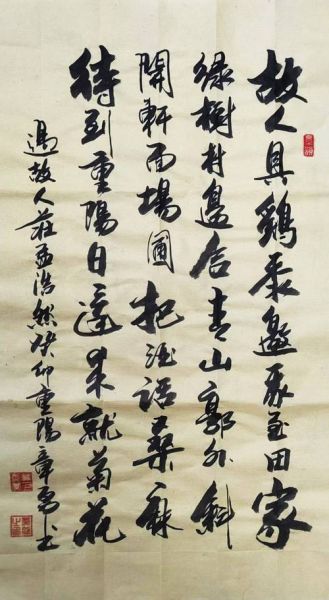 故人具鷄黍邀我至田家
绿樹村邊合青山郭外斜
開軒面場圃把酒話桑麻
待到重陽日還來就菊花
過故人莊孟浩然 重陽 章 書